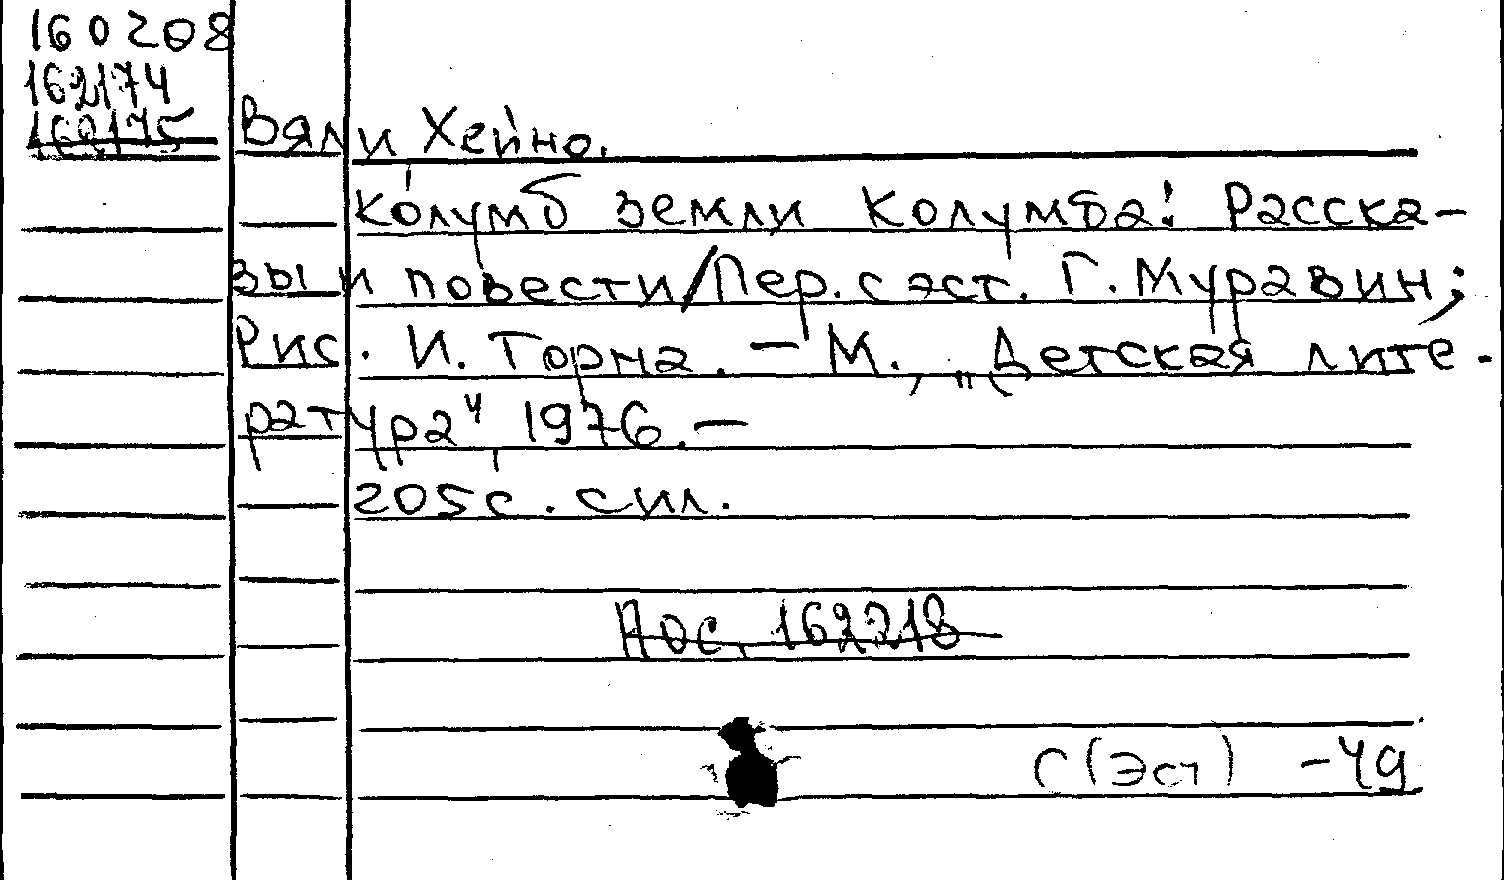 160208
162174
162175
Вяли Хейно.
Колумб земли Колумба: Расска-
зы и повести/Пер. с эст. Г. Муравин;
Рис. И. Торма. – М., „Детская лите-
ратура", 1976. –
205 с. с ил.
162218
С(Эст) -49